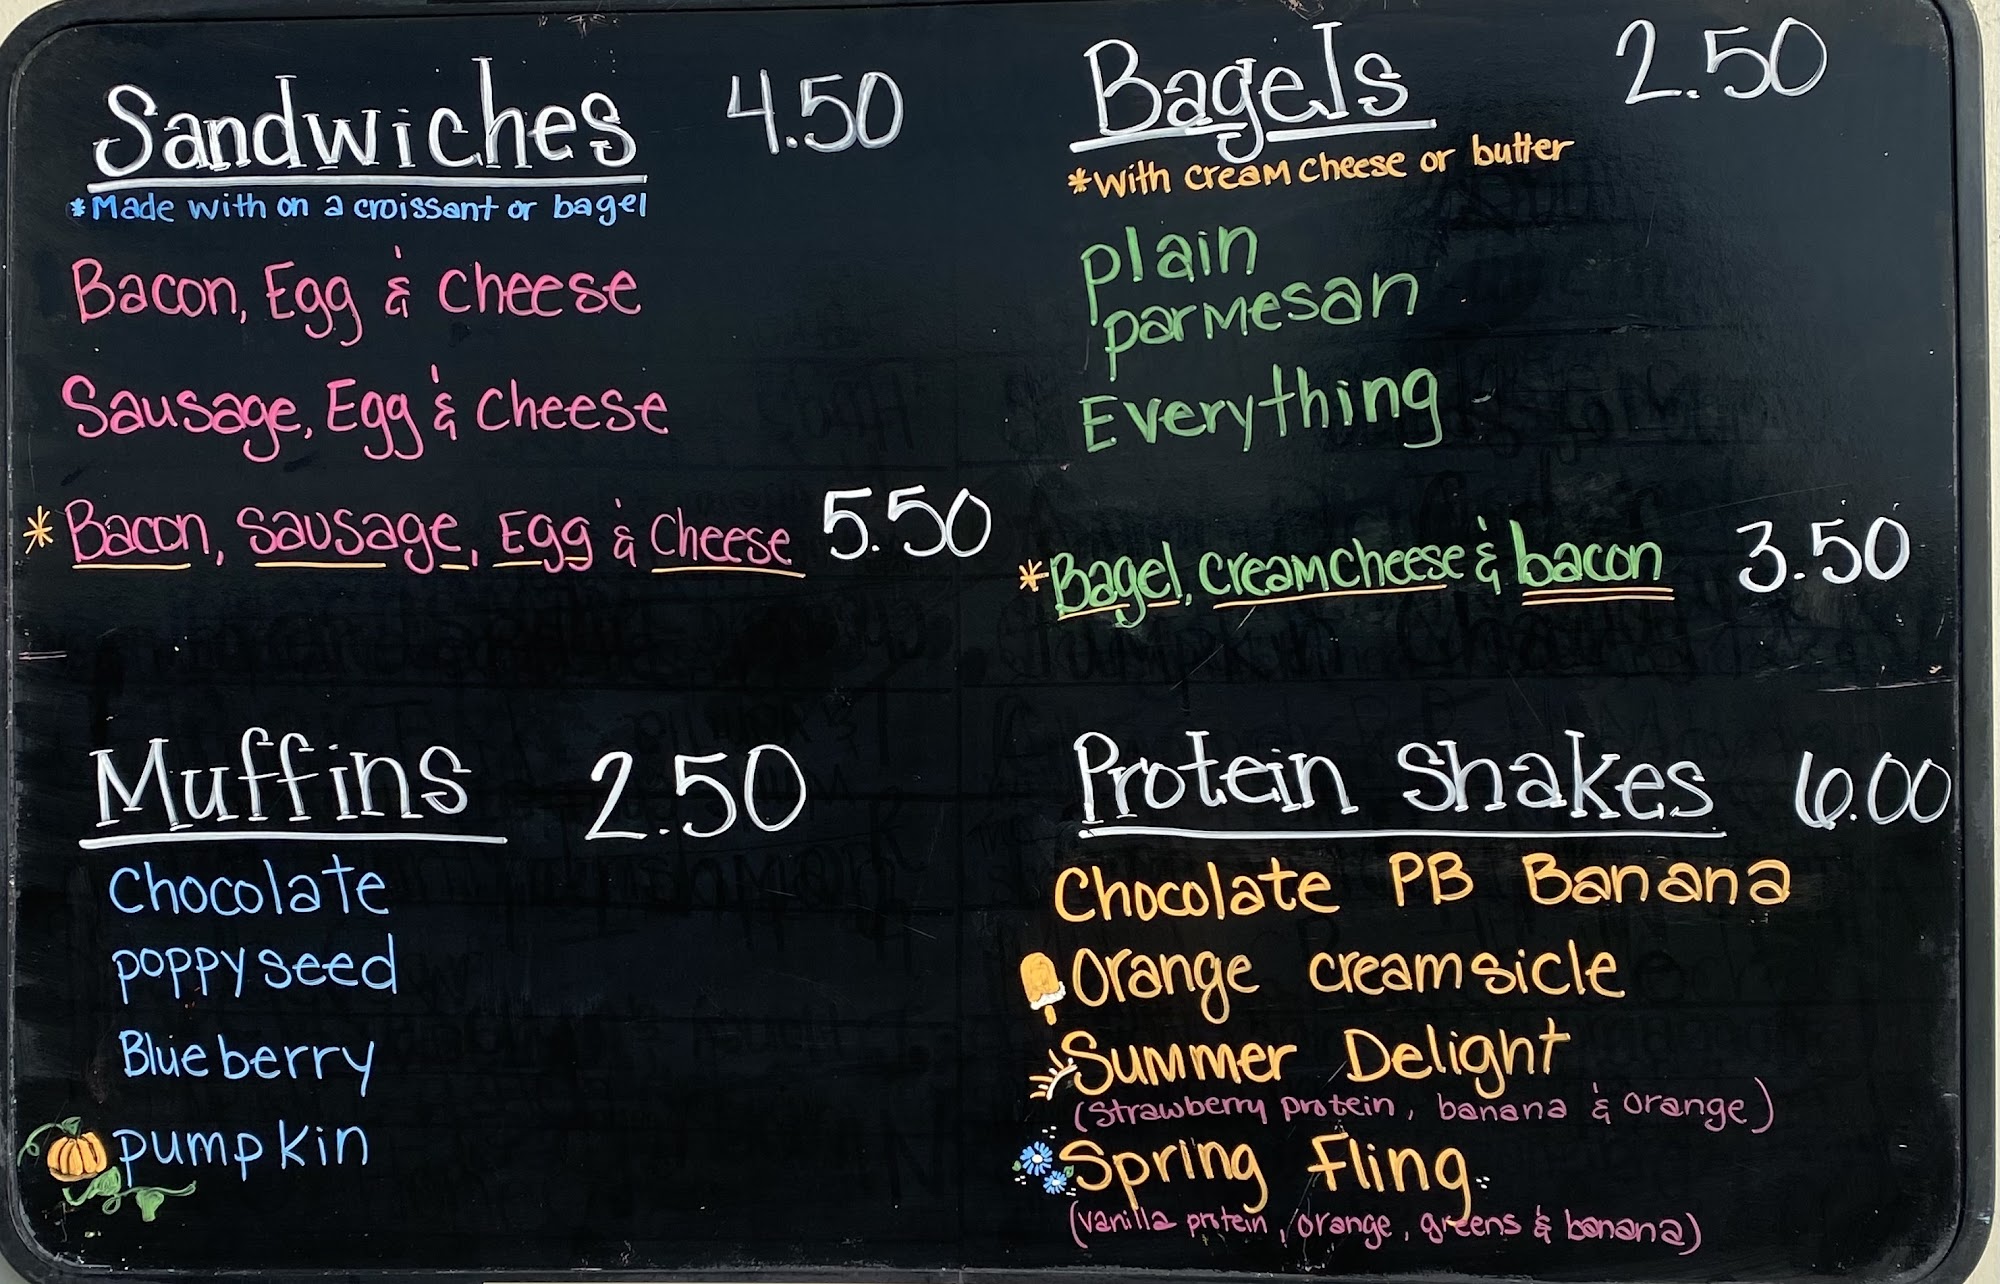 Sandwiches 4.50
*Made with on a croissant or bagel
Bacon, Egg & Cheese
Sausage, Egg & Cheese
*Bacon, Sausage, Egg & Cheese 5.50
Bagels 2.50
*with cream cheese or butter
plain
parmesan
Everything
*Bagel, cream cheese & bacon 3.50
Muffins 2.50
Chocolate
poppy seed
Blueberry
pumpkin
Protein Shakes 6.00
Chocolate PB Banana
Orange creamsicle
Summer Delight
(Strawberry protein, banana & orange)
Spring Fling
(vanilla protein, orange, greens & banana)